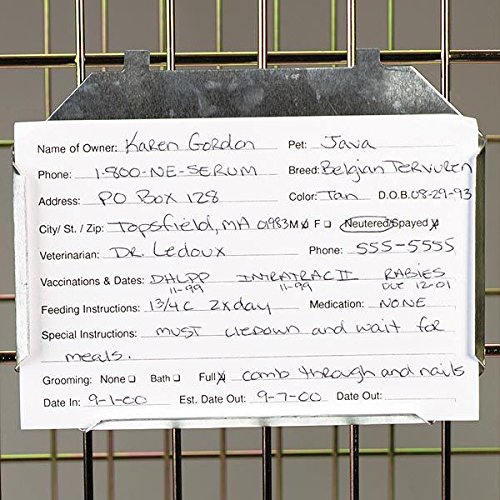 Name of Owner: Karen Gordon Pet: Java
Phone: 1-800-NE-SERUM Breed: Belgian Tervuren
Address: PO Box 128 Color: Tan D.O.B. 08-29-93
City/ St. / Zip: Topsfield, MA 01983 M ☑ F ☐ Neutered/Spayed ☑
Veterinarian: Dr. Ledoux Phone: 555-5555
Vaccinations & Dates: DHLPP INTRATRAC II RABIES
11-99 11-99 DUE 12-01
Feeding Instructions: 1 3/4 C 2x day Medication: NONE
Special Instructions: must liedown and wait for
meals.
Grooming: None ☐ Bath ☐ Full ☒ comb through and nails
Date In: 9-1-00 Est. Date Out: 9-7-00 Date Out: